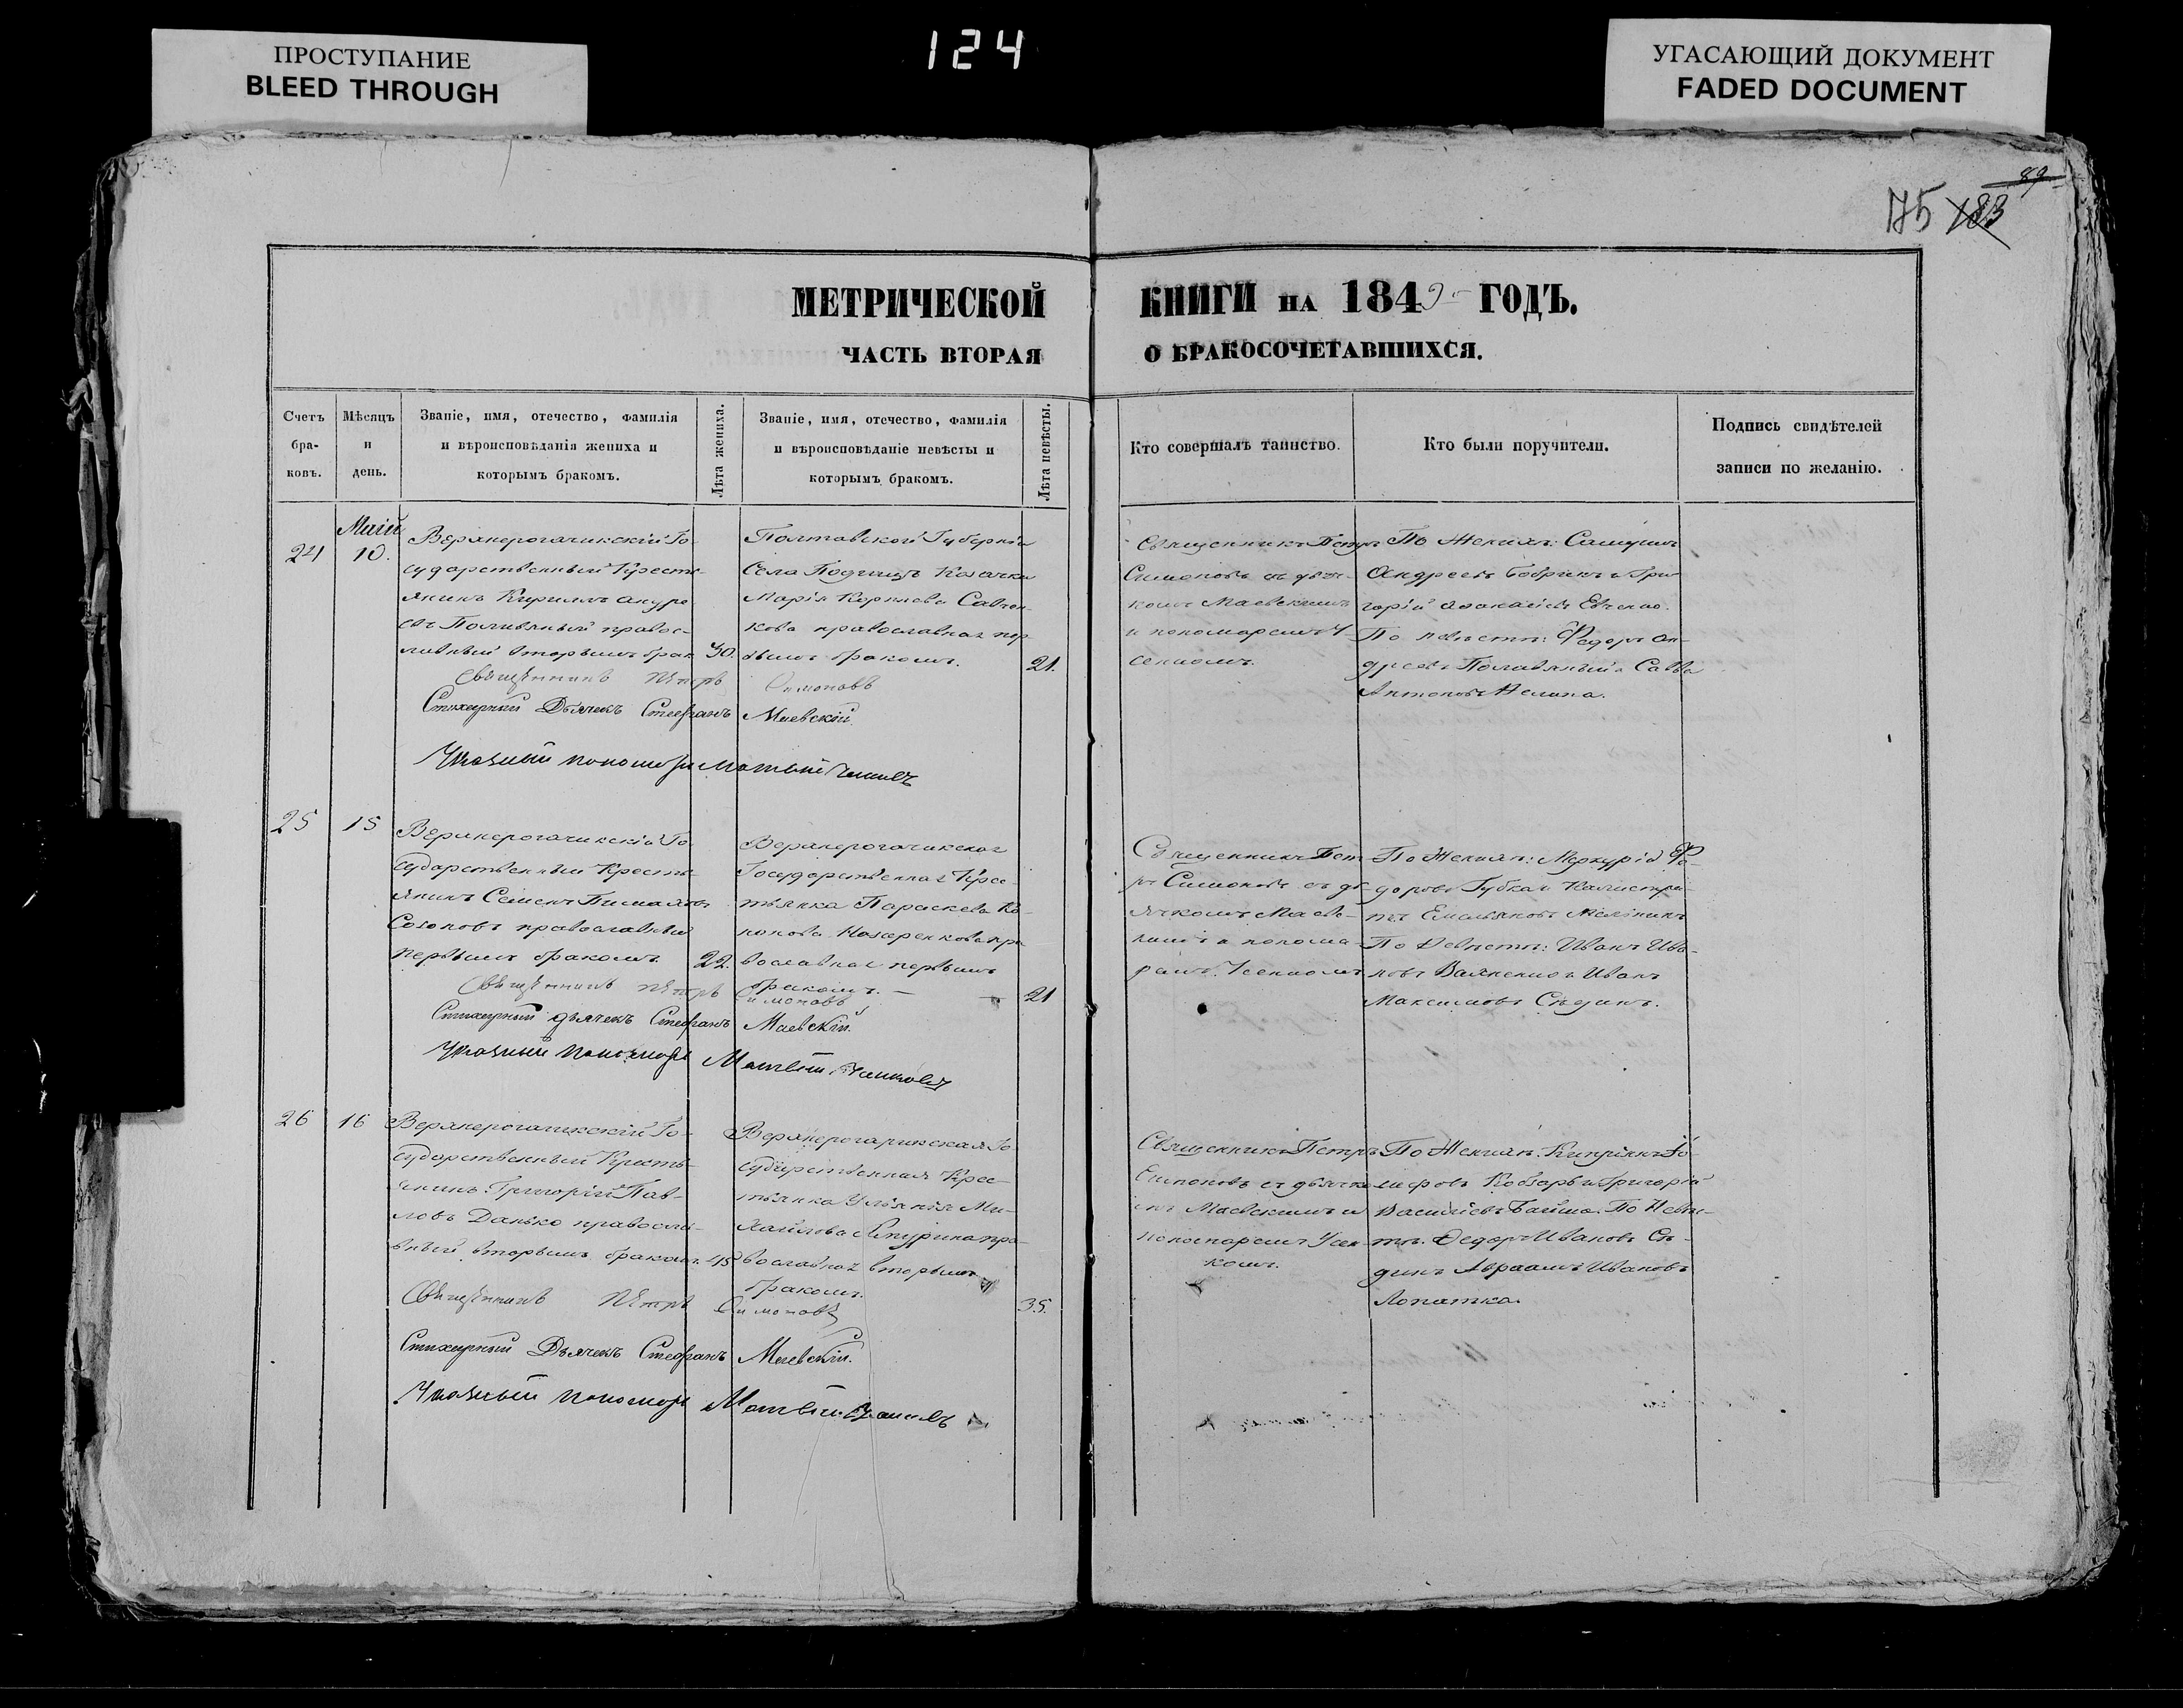 ПРОСТУПАНИЕ
BLEED THROUGH
124
УГАСАЮЩИЙ ДОКУМЕНТ
FADED DOCUMENT
89
175 183
МЕТРИЧЕСКОЙ КНИГИ НА 1849 ГОДЪ.
ЧАСТЬ ВТОРАЯ О БРАКОСОЧЕТАВШИХСЯ.
Счетъ
бра-
ковъ.
Мѣсяцъ
и
день.
Званіе, имя, отечество, фамилія
и вѣроисповѣданія жениха и
которымъ бракомъ.
Лѣта жениха.
Званіе, имя, отечество, фамилія
и вѣроисповѣданіе невѣсты и
которымъ бракомъ.
Лѣта невѣсты.
Кто совершалъ таинство.
Кто были поручители.
Подпись свидѣтелей
записи по желанію.
24
Май
10.
Верхнерогачикскій Го-
сударственный Кресть-
янинъ Кирилъ Андре
евъ Поливяный правос-
лавный вторымъ брак
30.
Полтавской Губерніи
Села Подгища Козачка
Марія Корнѣева Савчен-
кова православная пер
вымъ бракомъ.
21.
Священникъ Петръ
Симоновъ съ дьяч-
комъ Маевскимъ
и пономаремъ У-
сенкомъ.
По Женихѣ:
Андреевъ Бобринъ и Гри
горій
По невѣстѣ: Федоръ Ан-
дреевъ Поливяный и Савва
Антоновъ
Священникъ Петръ Симоновъ
Стихарный Дьячекъ Стефанъ Маевскій
Указный пономарь Матвѣй
25
15
Верхнерогачикскій Го
сударственный Кресть-
янинъ Семенъ
Соколовъ православный
первымъ бракомъ.
22.
Верхнерогачикская
Государственная Крес-
тьянка Параскева Ко-
нонова Назаренкова пра
вославная первымъ
бракомъ.
21
Священникъ Пет-
ръ Симоновъ съ дь-
ячкомъ Маевс-
кимъ и понома-
ремъ Усенкомъ
По Женихѣ: Меркурій Фе-
доровъ Губка и Калистра-
тъ Емельяновъ
По Невѣстѣ: Иванъ Ива-
новъ и Иванъ
Максимовъ Сѣдинъ.
Священникъ Петръ Симоновъ
Стихарный дьячекъ Стефанъ Маевскій
Указный пономарь Матвѣй
26
16
Верхнерогачикскій Го-
сударственный Кресть-
янинъ Григорій Пав-
ловъ Данько правосла-
вный вторымъ бракомъ.
45
Верхнерогачикская Го
сударственная Крес-
тьянка Ульянія Ми-
хайлова пра
вославная вторымъ
бракомъ.
35.
Священникъ Петръ
Симоновъ съ дьячко
мъ Маевскимъ и
пономаремъ Усен-
комъ.
По Женихѣ: Кипріянъ
Кобзарь и Григорій
Васильевъ Байша. По Невѣс-
тѣ: Федоръ Ивановъ Сѣ-
динъ Авраамъ Ивановъ
Лопатка.
Священникъ Петръ Симоновъ
Стихарный Дьячекъ Стефанъ Маевскій.
Указный пономарь Матвѣй